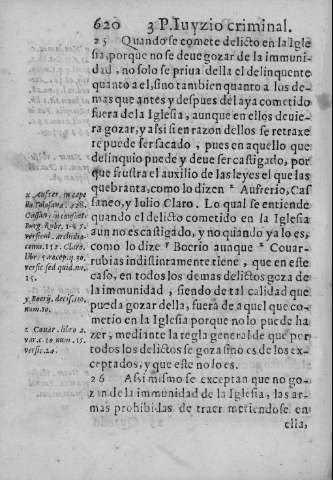 620 3 P. Iuyzio criminal.
25 Quando se comete delicto en la Igle
sia, porque no se deue gozar de la immuni-
dad, no solo se priua della el delinquente
quanto a el, sino tambien quanto a los de-
mas que antes y despues del aya cometido
fuera de la Iglesia, aunque en ellos deuie-
ra gozar, y assi si en razon dellos se retraxe
re puede ser sacado, pues en aquello que
delinquio puede y deue ser castigado, por
que frustra el auxilio de las leyes el que las
quebranta, como lo dizen x Aufrerio, Cas
saneo, y Julio Claro. Lo qual se entiende
quando el delicto cometido en la Iglesia
aun no es castigado, y no quando ya lo es,
como lo dize y Boerio aunque z Couar-
rubias indistintamente tiene, que en este
caso, en todos los demas delictos goza de
la immunidad, siendo de tal calidad que
pueda gozar della, fuera de aquel que co-
metio en la Iglesia porque no lo puede ha
zer, mediante la regla general de que por
todos los delictos se goza sino es de los ex-
ceptados, y que este no lo es.
26 Assi mismo se exceptan que no go-
zan de la immunidad de la Iglesia, las ar-
mas prohibidas de traer metiendose en
ella,
x Aufrer. in cape
lla Tolosana. 428.
Cassan. in consuet.
Burg. Rubr. 1. § 5.
versicul.
num. 112. Claro.
lib. 5 recep. q. 30.
versic. sed quid. nu.
15.
y Boerij. decis. 110.
num. 10.
z Couar. libro 2.
var. c. 20 num. 15.
versic. 24.